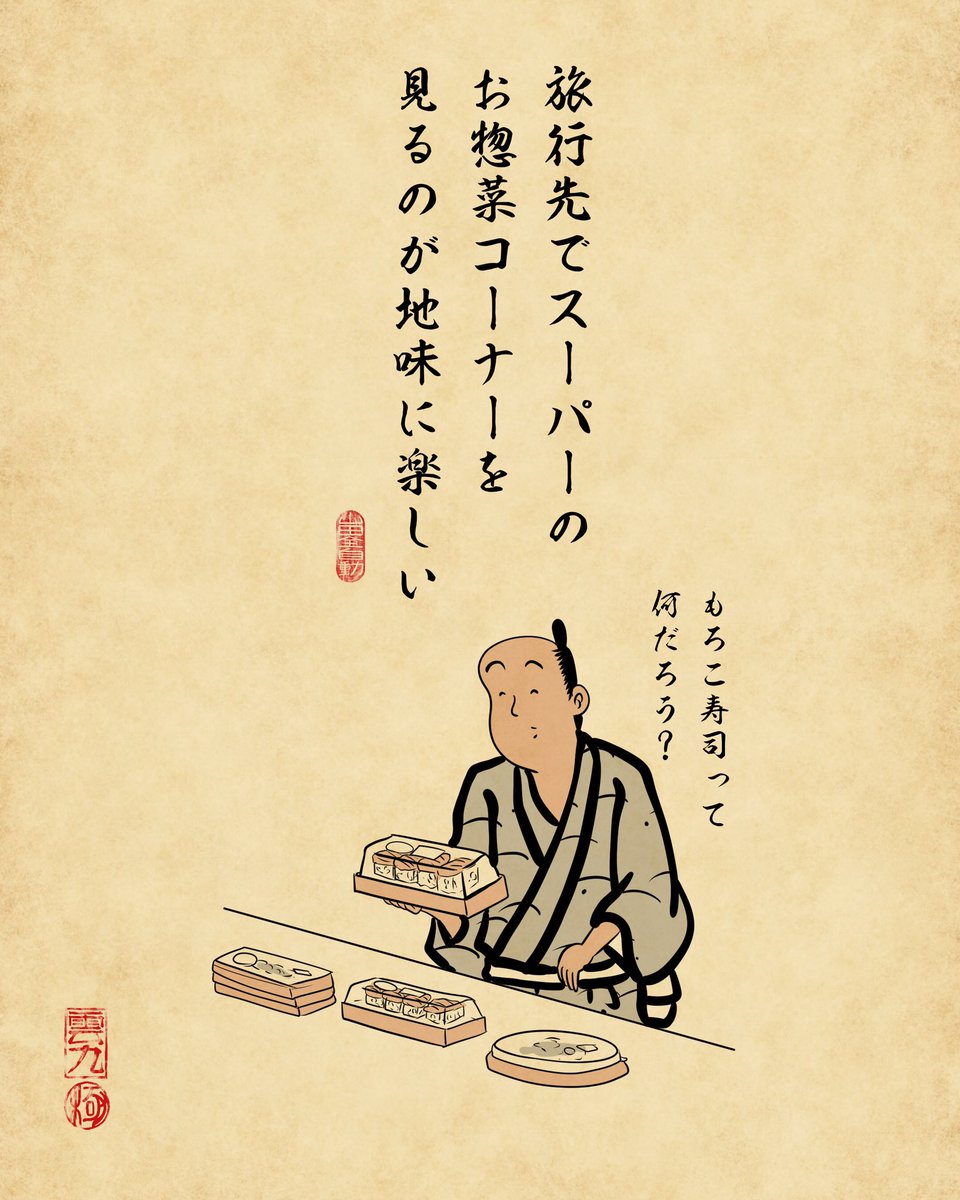 旅行先でスーパーの
お惣菜コーナーを
見るのが地味に楽しい
もろこ寿司って
何だろう？